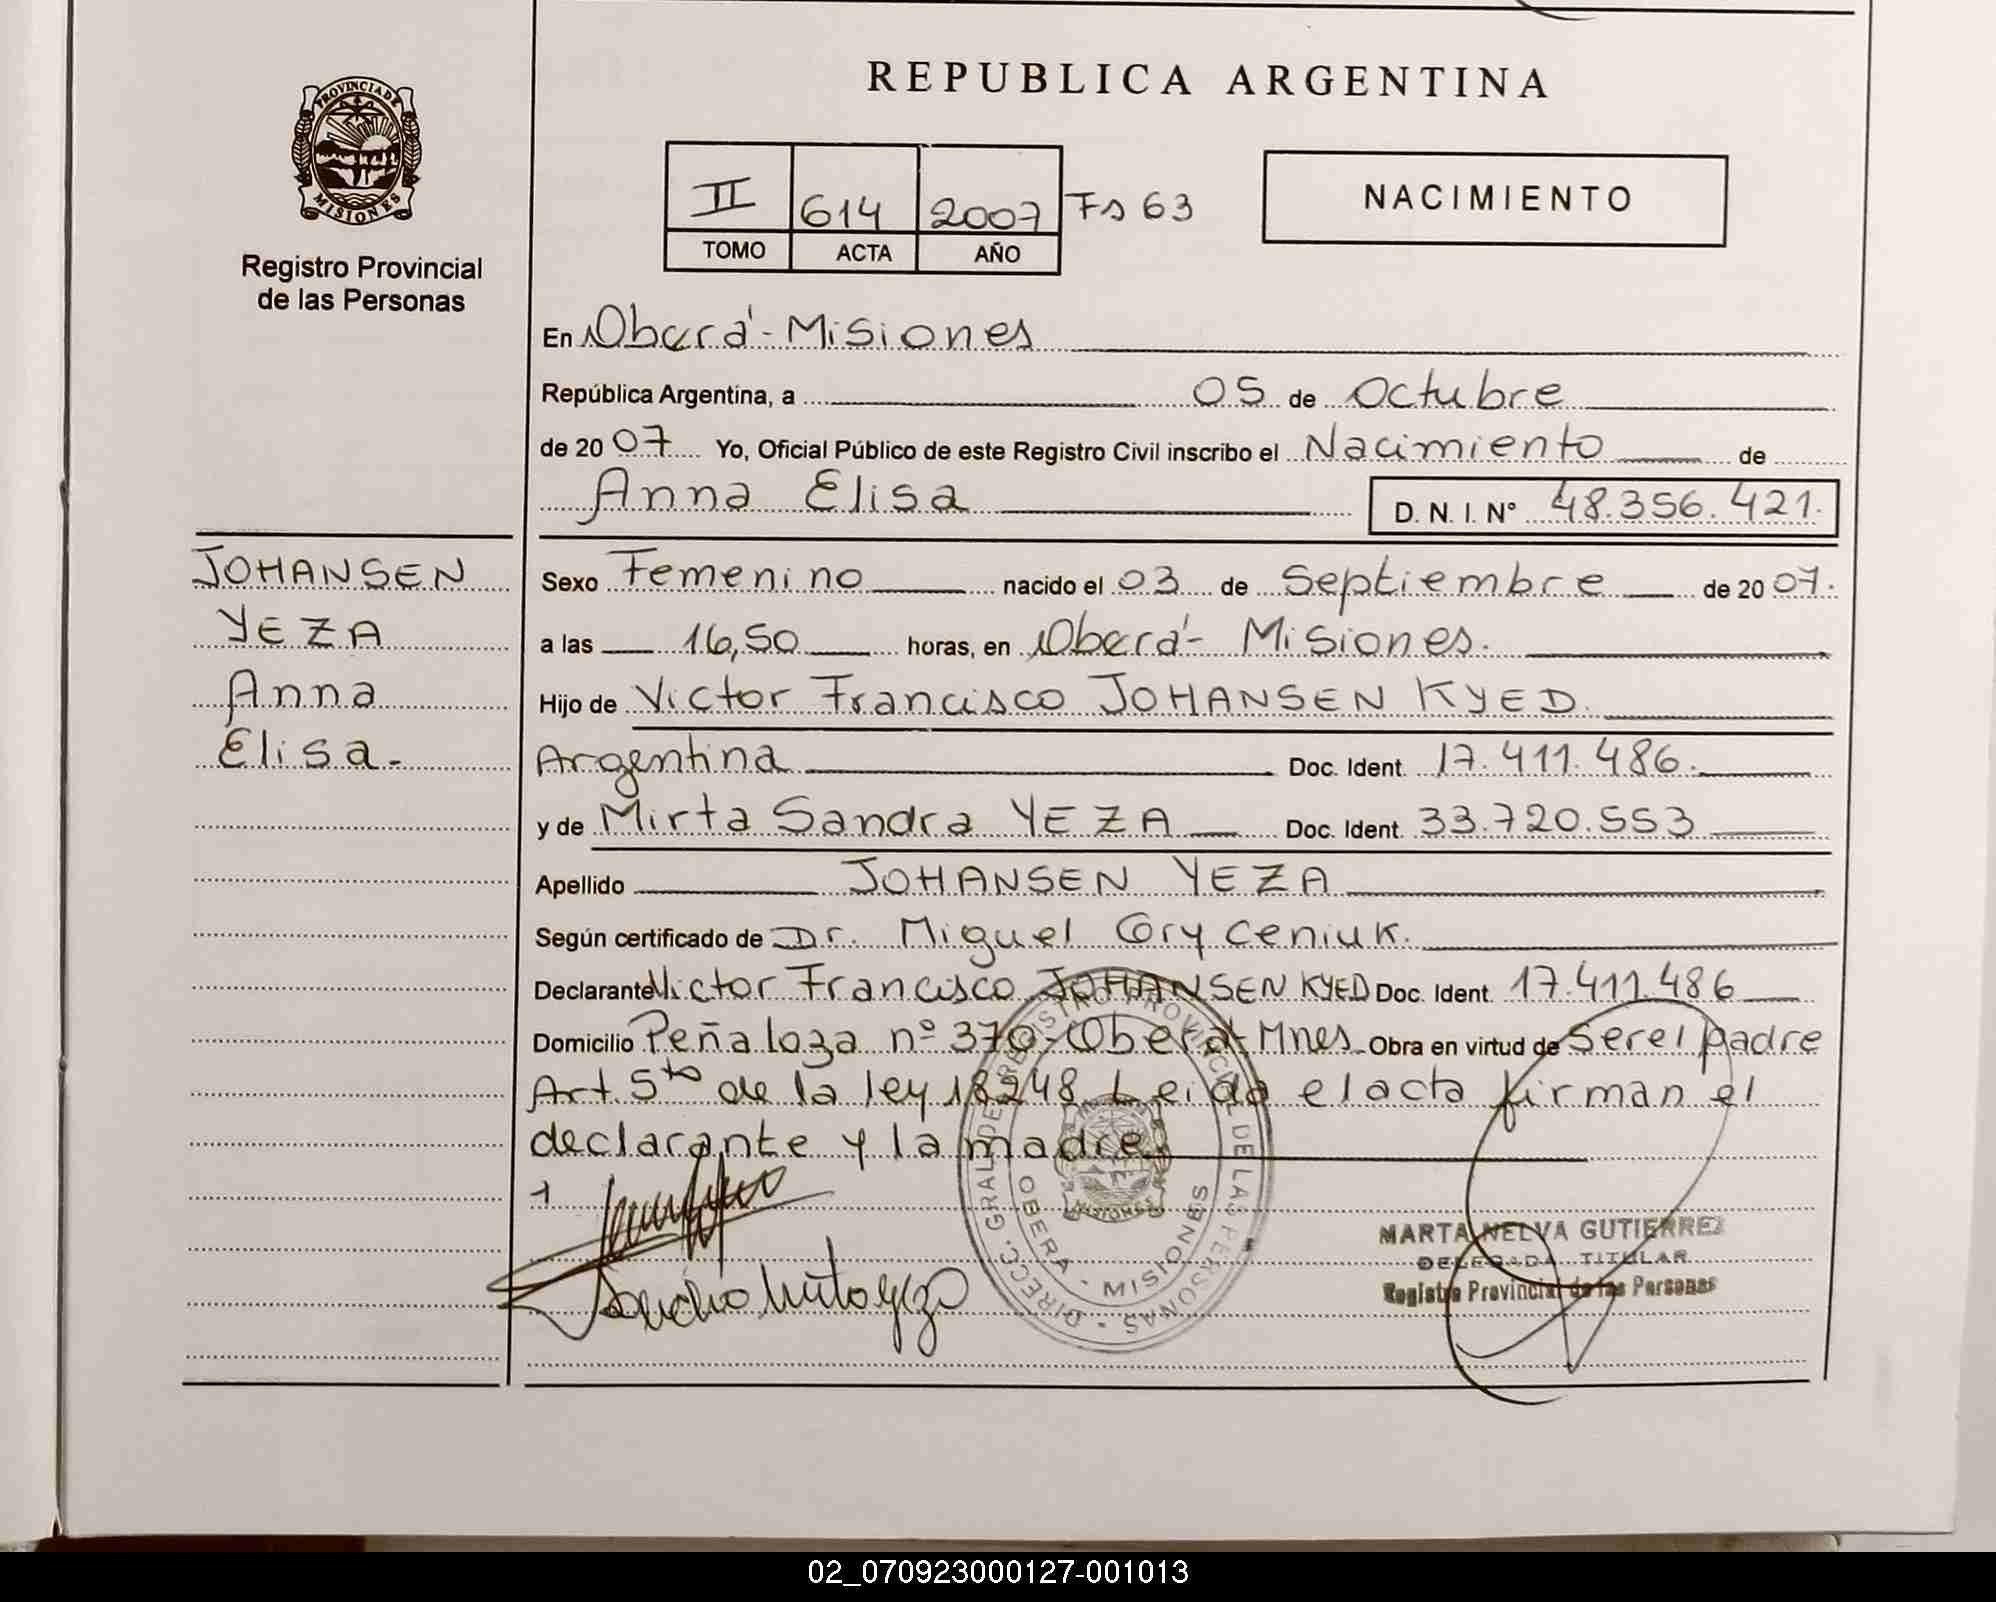 REPUBLICA ARGENTINA
PROVINCIA DE
MISIONES
Registro Provincial
de las Personas
II 614 2007 Fs 63
TOMO ACTA AÑO
NACIMIENTO
En Oberá - Misiones
República Argentina, a 05 de Octubre
de 2007 Yo, Oficial Público de este Registro Civil inscribo el Nacimiento de
Anna Elisa D. N. I. N° 48.356.421.
JOHANSEN
YEZA
Anna
Elisa.-
Sexo Femenino nacido el 03 de Septiembre de 2007.
a las 16,50 horas, en Oberá - Misiones.
Hijo de Victor Francisco JOHANSEN KYED.
Argentina Doc. Ident. 17.411.486.
y de Mirta Sandra YEZA Doc. Ident. 33.720.553
Apellido JOHANSEN YEZA
Según certificado de Dr. Miguel Oryceniuk.
Declarante Victor Francisco JOHANSEN KYED Doc. Ident. 17.411.486
Domicilio Peñaloza nº 370 - Oberá - Mnes Obra en virtud de Ser el padre
Art. 5to de la ley 18248. Leida el acta firman el
declarante y la madre.
DIRECC. GRAL. DE REGISTRO PROVINCIAL DE LAS PERSONAS
OBERA - MISIONES
MISIONES
MARTA NELVA GUTIERREZ
DELEGADA TITULAR
Registro Provincial de las Personas
02_070923000127-001013